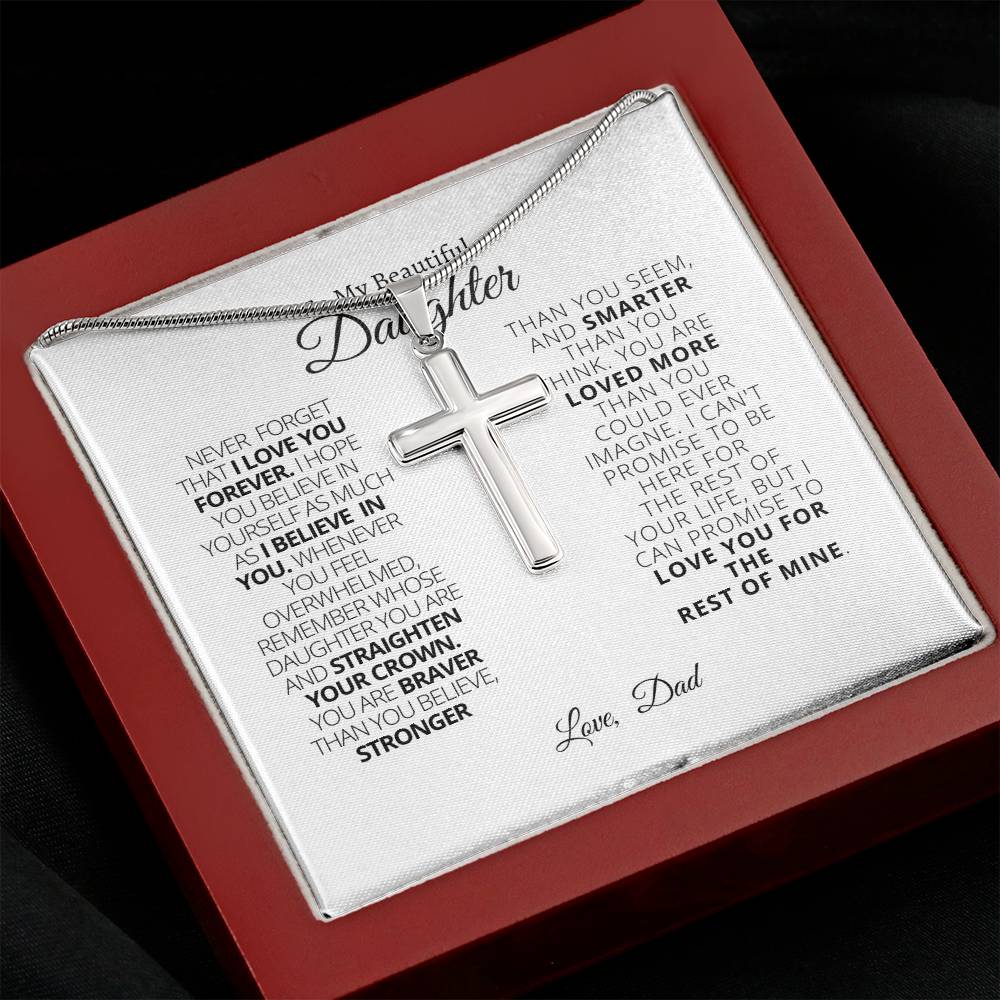 My Beautiful
Daughter
NEVER FORGET
THAT I LOVE YOU
FOREVER. I HOPE
YOU BELIEVE IN
YOURSELF AS MUCH
AS I BELIEVE IN
YOU. WHENEVER
YOU FEEL
OVERWHELMED,
REMEMBER WHOSE
DAUGHTER YOU ARE
AND STRAIGHTEN
YOUR CROWN.
YOU ARE BRAVER
THAN YOU BELIEVE,
STRONGER
THAN YOU SEEM,
AND SMARTER
THAN YOU
THINK. YOU ARE
LOVED MORE
THAN YOU
COULD EVER
IMAGNE. I CAN'T
PROMISE TO BE
HERE FOR
THE REST OF
YOUR LIFE, BUT I
CAN PROMISE TO
LOVE YOU FOR
THE
REST OF MINE.
Love, Dad